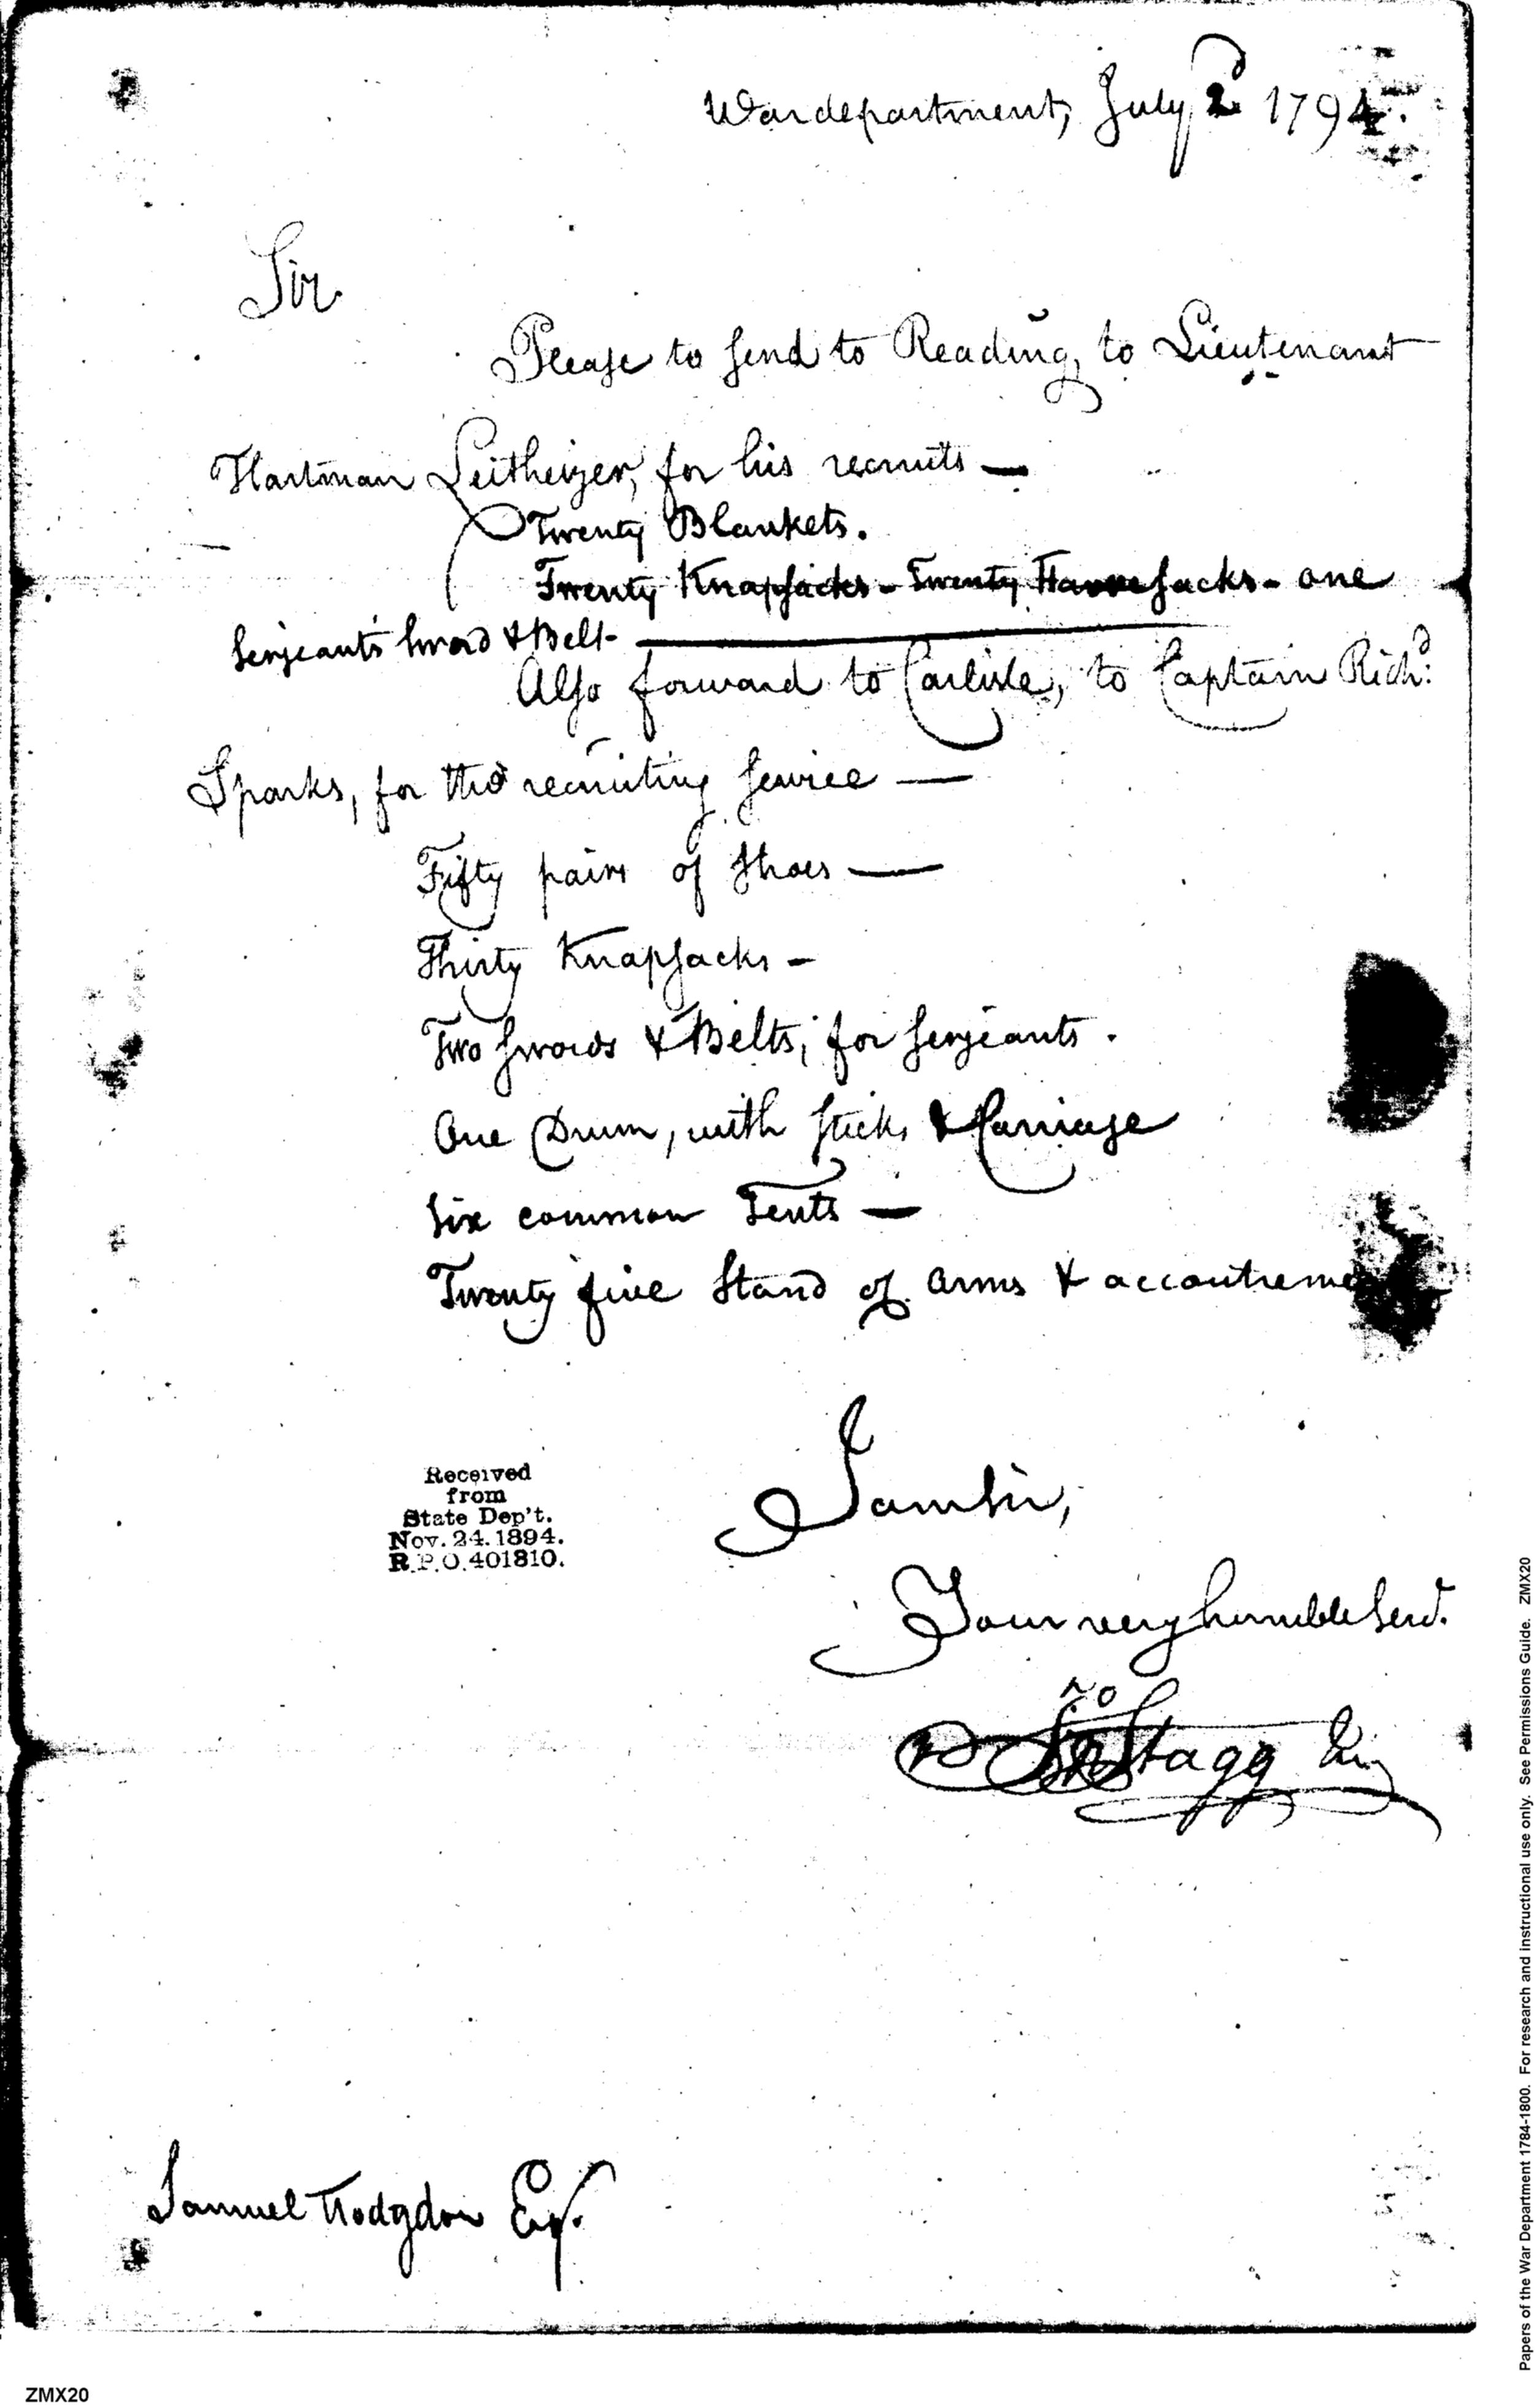 War department, July 2d 1794.
Sir
Please to send to Reading, to Lieutenant
Hartman Leitheizer, for his recruits —
Twenty Blankets.
Twenty Knapsacks - Twenty Haversacks - one
Serjeant's sword & Belt -
Also forward to Carlisle, to Captain Richd:
Sparks, for the recruiting service —
Fifty pairs of Shoes —
Thirty Knapsacks -
Two swords & Belts, for serjeants.
One Drum, with sticks & Carriage
Six common Tents —
Twenty five Stand of arms & accoutreme
Received
from
State Dep't.
Nov. 24. 1894.
R.P.O. 401810.
I am Sir,
Your very humble Servt.
Jno Stagg Jr
Samuel Hodgdon Esqr.
ZMX20
Papers of the War Department 1784-1800. For research and instructional use only. See Permissions Guide. ZMX20